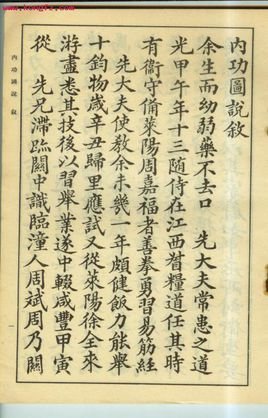 內功圖說敘
余生而幼弱藥不去口　先大夫常患之道
光甲午年十三隨侍在江西督糧道任其時
有衛守備萊陽周嘉福者善拳勇習易筋經
　先大夫使教余未幾一年頗健飯力能舉
十鈞物歲辛丑歸里應試又從萊陽徐全來
游盡悉其技後以習舉業遂中輟咸豐甲寅
從　先兄滯跡關中識臨潼人周斌周乃關
內功圖說　敘
一